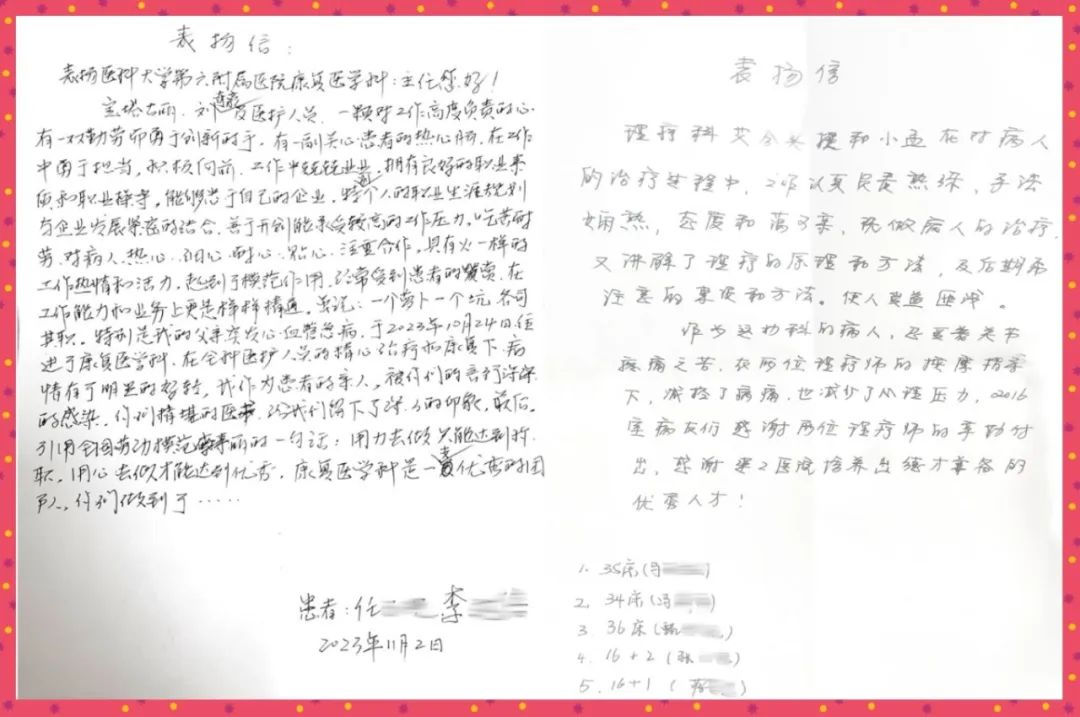 表扬信:
表扬医科大学第六附属医院康复医学科:主任您好!
宝塔古丽、刘 及医护人员,一颗对工作高度负责的心
有一双勤劳而勇于创新的手,有一副关心患者的热心肠,在工作
中勇于担当,积极向前,工作中兢兢业业,拥有良好的职业素
质和职业操守,能够忠于自己的企业,将个人的职业生涯规划
与企业发展紧密的结合,善于开创能承受较高的工作压力,吃苦耐
劳,对病人、热心、细心、耐心、贴心、注重合作,具有火一样的
工作热情和活力,起到了模范作用,经常受到患者的 在
工作能力和业务上更是样样精通。 一个萝卜一个坑,各司
其职。特别是我的父亲突发心血管急病,于2023年10月24日住
进了康复医学科,在全科医护人员的精心治疗和康复下,病
情有了明显的好转,我作为患者的亲人,被你们的言行深深
的感染,你们精湛的医 给我们留下了深刻的印象,最后,
引用全国劳动模范 丽的一句话:用力去做只能达到称
职,用心去做才能达到优秀,康复医学科是一 优秀的团
队,你们做到了……
患者:任 李
2023年11月2日
表扬信
理疗科艾 提和小孟在对病人
的治疗过程中,工作认真负责熟练,手法
娴熟,态度和蔼可亲,既做病人的治疗,
又讲解了理疗的原理和方法,及后期需
注意的事项和方法。使人 。
作为 科的病人,还要著关节
疼痛之苦,在两位理疗师的按摩指导
下,减轻了病痛,也减少了心理压力,2016
室病友们感谢两位理疗师的辛勤付
出,感谢 医院培养出德才兼备的
优秀人才!
1. 35床(马 )
2. 34床(冯 )
3. 36床( )
4. 16+2(张 )
5. 16+1( )